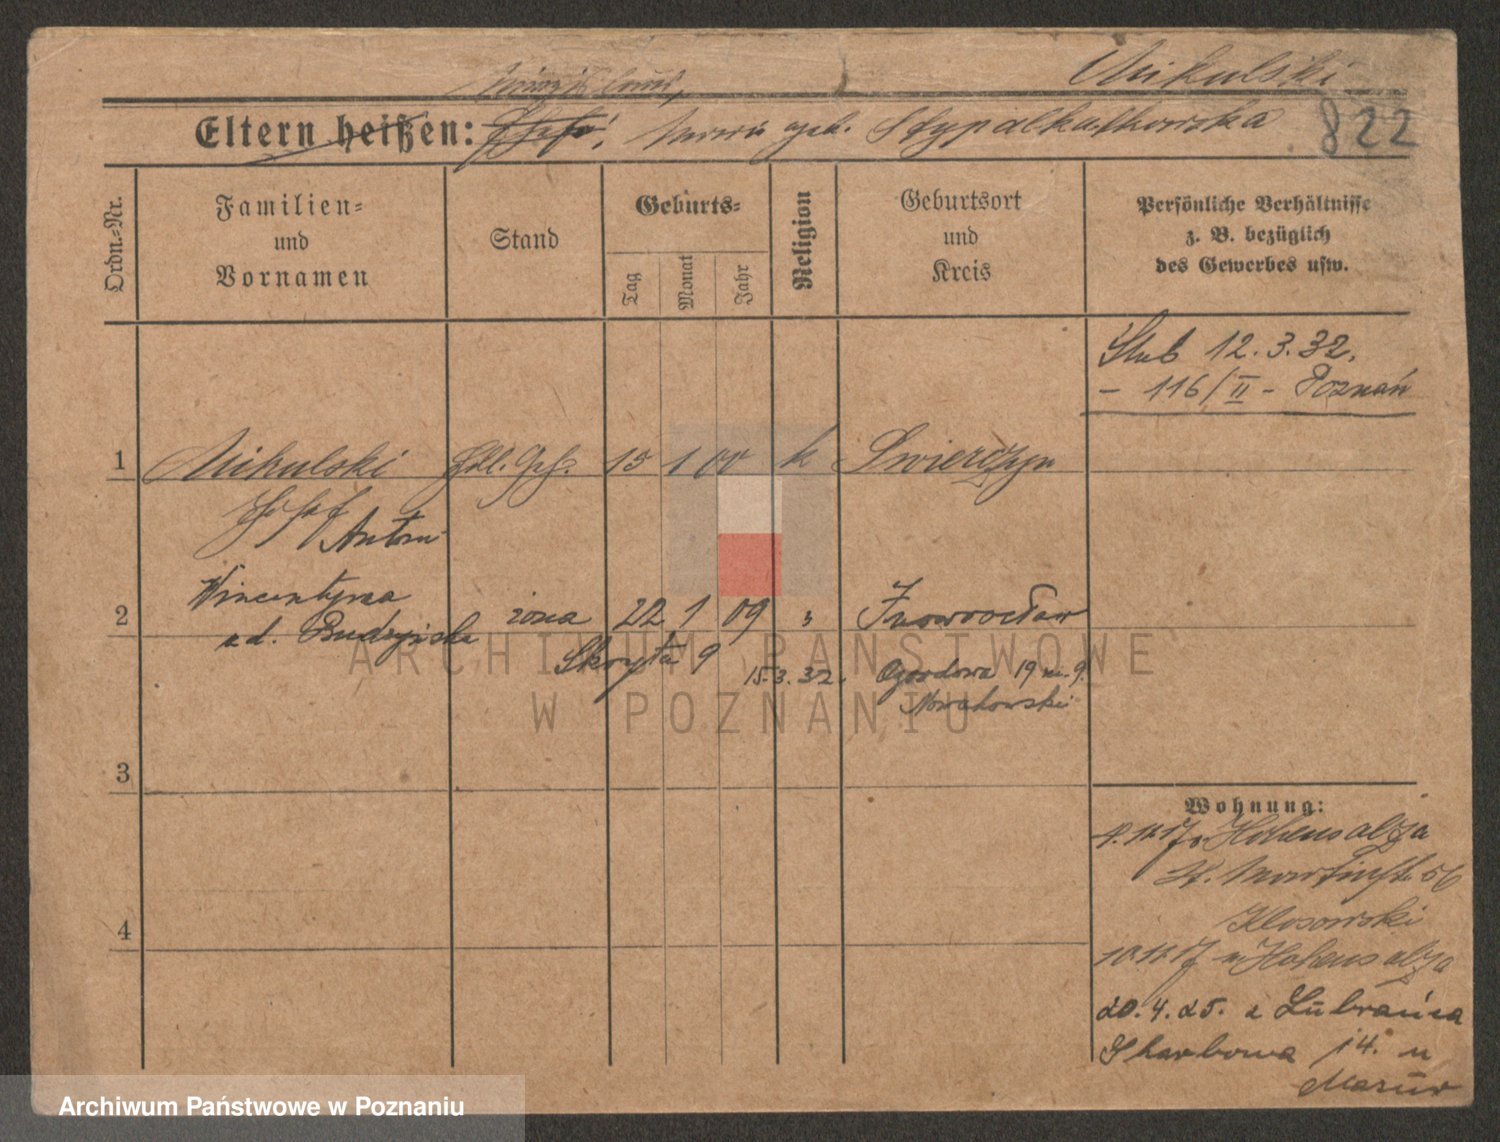 Mikulski
Eltern heißen: geb. Stypalkowska
822
Ordn.-Nr.
Familien-
und
Vornamen
Stand
Geburts-
Tag
Monat
Jahr
Religion
Geburtsort
und
Kreis
Persönliche Verhältnisse
z. B. bezüglich
des Gewerbes usw.
Ślub 12.3.32.
- 116/II - Poznań
1 Mikulski Hdl. Geh. 15 1 00 k Swierczyn
Josef
Antoni
Wincentyna
2 żona 22 1 09 " Inowrocław
ud. Budzyńska
Skryta 9 15.3.32. Ogrodowa 19 m. 9.
Nowakowski
3
Wohnung:
4.11.17 v. Hohensalza
St. Martinstr. 56
Klosowski
4
10.11.17 n Hohensalza
20.4.25. z Lubrańca
Skarbowa 14. u
Mazur
ARCHIWUM PAŃSTWOWE
W POZNANIU
Archiwum Państwowe w Poznaniu